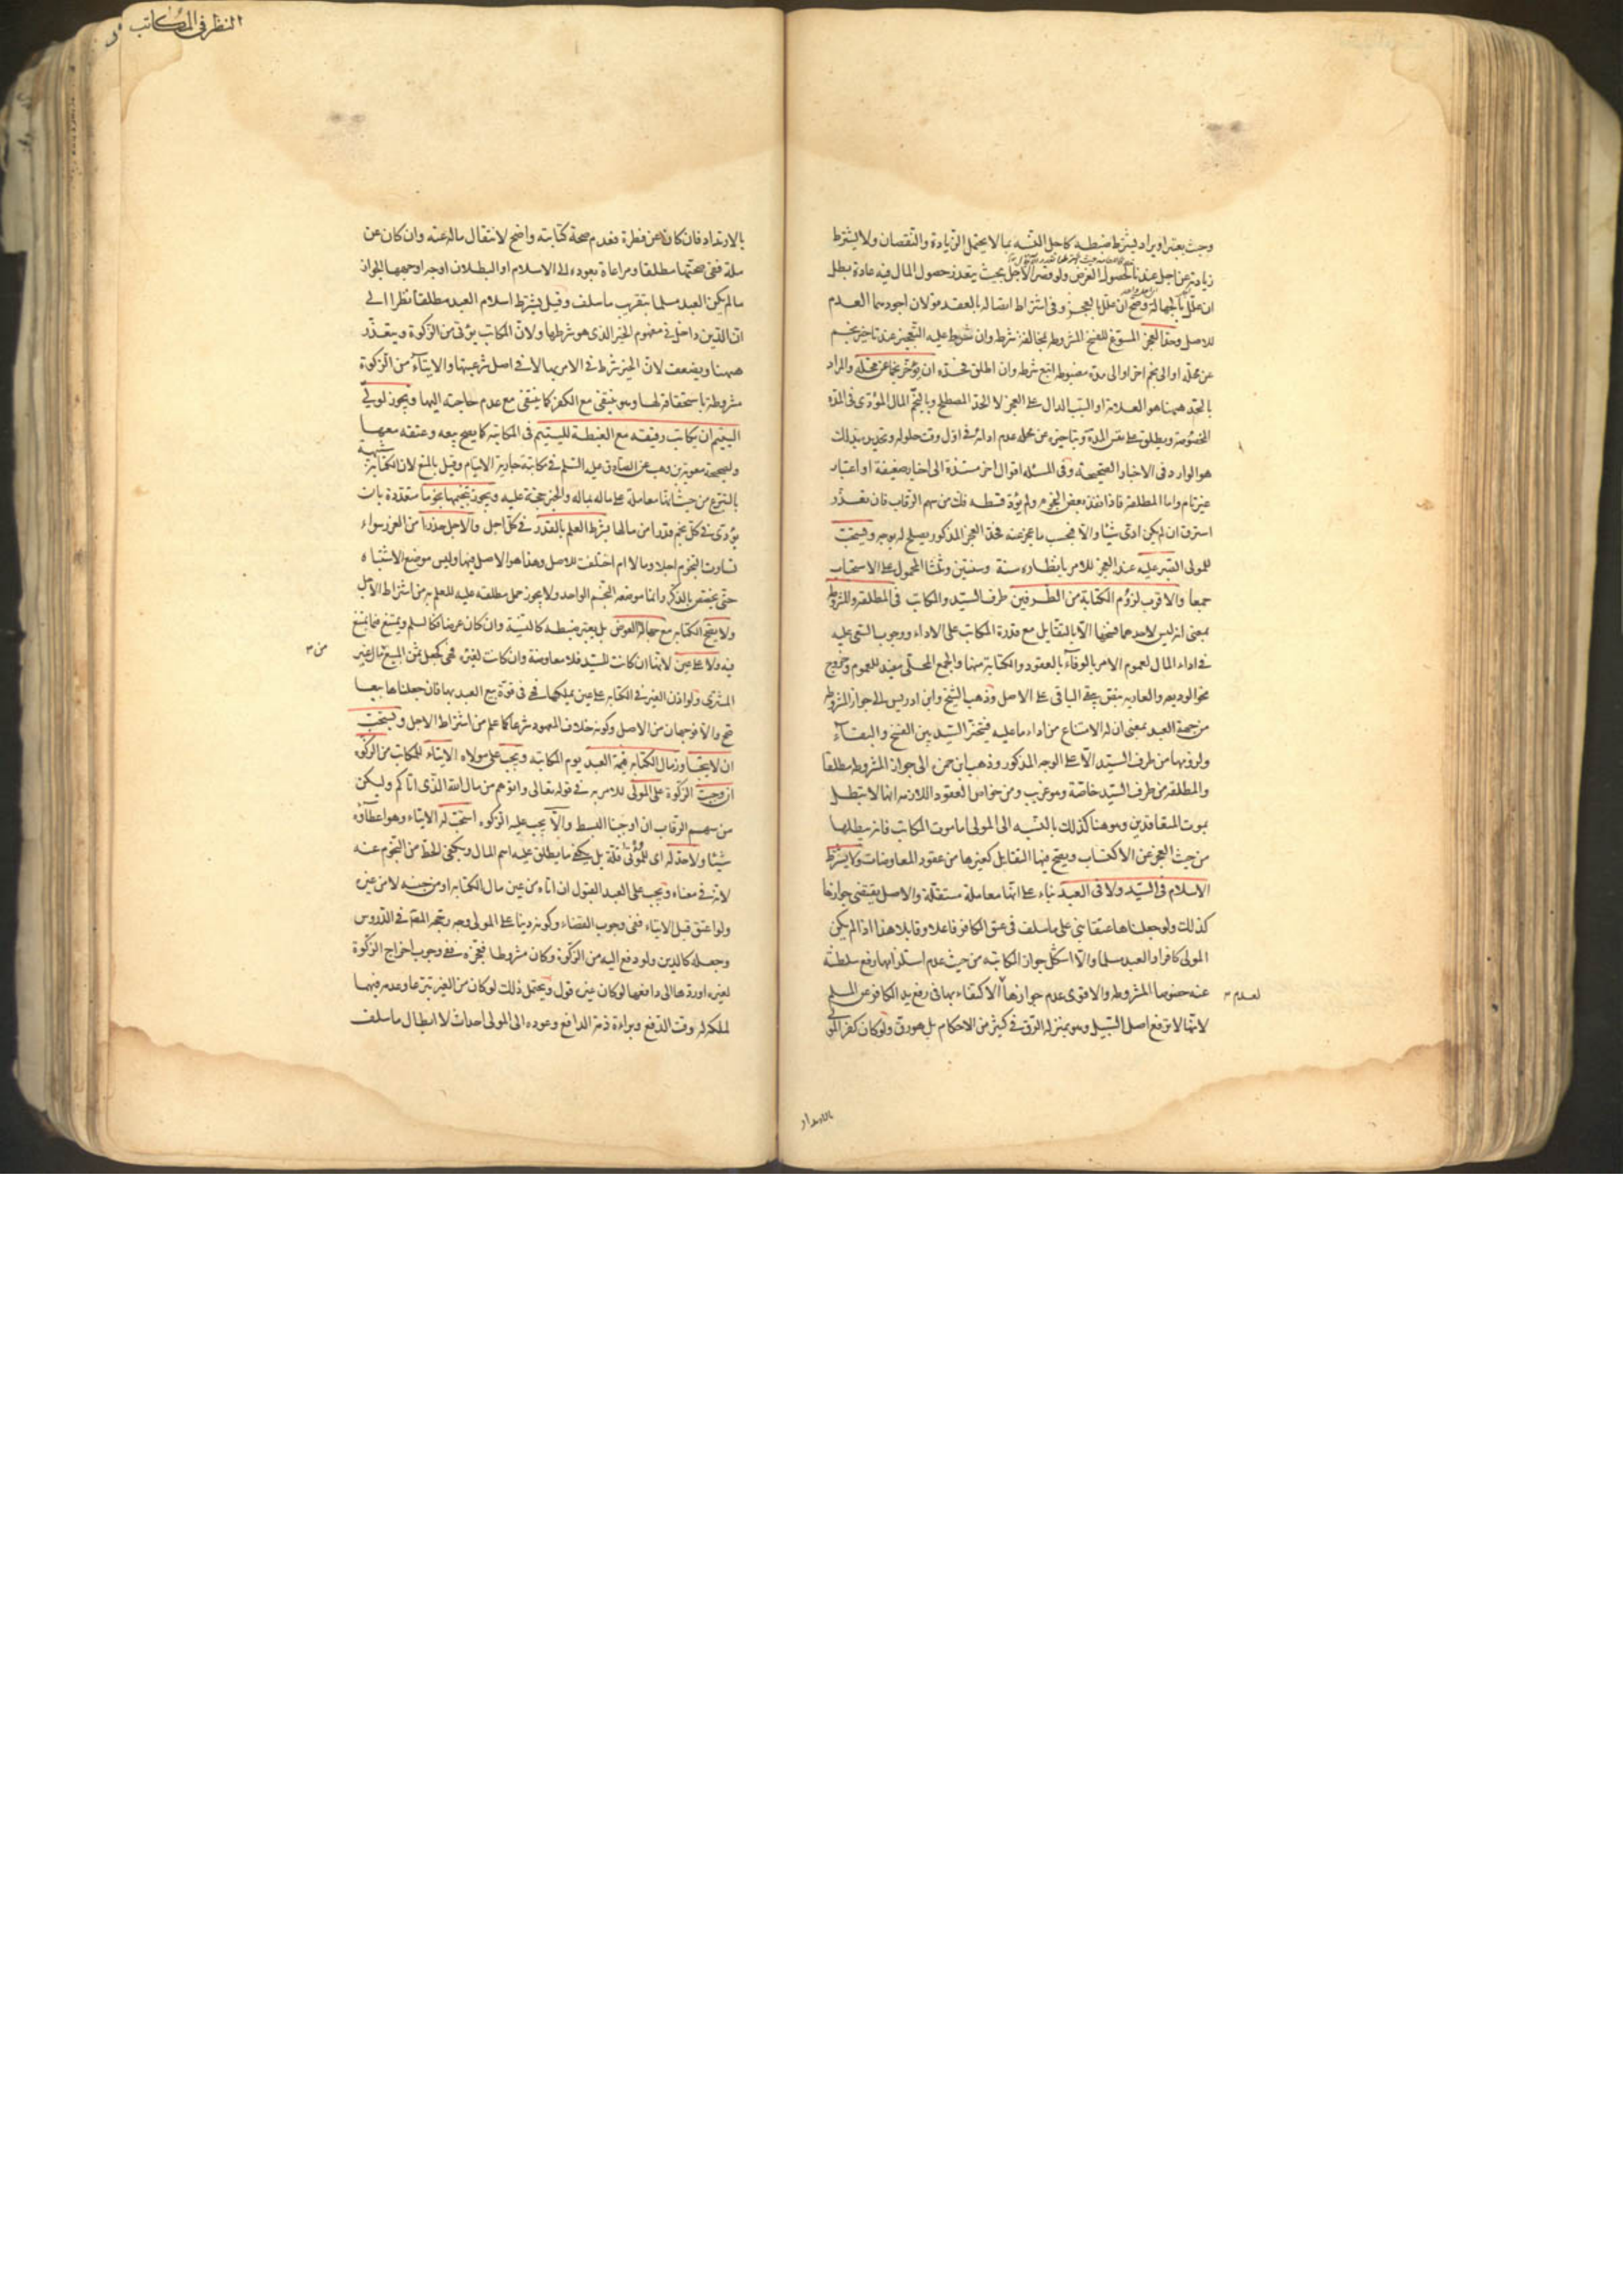 وحيث يعتبر او يراد يشترط ضبطه كاجل النسيه بما لا يحتمل الزيادة والنقصان ولا يشترط
زيادته عن اجل عندنا لحصول الغرض ولو قصر الاجل بحيث يتعذر حصول المال فيه عادة بطل
ان علل بالجهالة وصح ان علل بالعجز وفى اشتراط اتصاله بالعقد قولان اجودهما العدم
للاصل وحد العجز المسوغ للفسخ فى المشروطه مخالفة شرطه وان شرط عليه التعجيز عند تاخير نجم
عن محله او الى نجم اخر او الى مدة مضبوطه اتبع شرطه وان اطلق فحده ان يؤخر نجما عن محله والمراد
بالحد ههنا هو العلامة او السبب الدال على العجز لا الحد المصطلح وبالنجم المال المؤدى فى المدة
المخصوصة ويطلق على نفس المدة وبتاخيره عن محله عدم ادائه فى اول وقت حلوله وتحديده بذلك
هو الوارد فى الاخبار الصحيحه وفى المسئله اقوال اخر مستندة الى اخبار ضعيفة او اعتبار
غير تام واما المطلقه فاذا نفذ بعض النجوم ولم يؤد قسطه فك من سهم الرقاب فان تعذر
استرق ان لم يكن ادى شيئا والا فبحسب ما عجز عنه فحد العجز المذكور يصلح له بوجه ويستحب
للمولى الصبر عليه عند العجز للامر بانتظاره سنة وسنتين وثلثا المحمول على الاستحباب
جمعا والاقرب لزوم الكتابة من الطرفين طرف السيد والمكاتب فى المطلقه والمشروطه
بمعنى انه ليس لاحدهما فسخها الا بالتقايل مع قدرة المكاتب على الاداء ووجوب السعى عليه
فى اداء المال لعموم الامر بالوفاء بالعقود والكتابة منها والجمع المحلى مفيد للعموم وخروج
نحو الوديعه والعاريه بنص يبقى الباقى على الاصل وذهب الشيخ وابن ادريس الى جواز المشروطه
من جهة العبد بمعنى ان له الامتناع من اداء ما عليه فيتخير السيد بين الفسخ والبقاء
ولزومها من طرف السيد الا على الوجه المذكور وذهب ابن حمزه الى جواز المشروطه مطلقا
والمطلقه من طرف السيد خاصة وهو غريب ومن خواص العقود اللازمه انها لا تبطل
بموت المتعاقدين وهو هنا كذلك بالنسبه الى المولى اما موت المكاتب فانه يبطلها
من حيث العجز عن الاكتساب ويصح فيها التقايل كغيرها من عقود المعاوضات ولا يشترط
الاسلام فى السيد ولا فى العبد بناء على انها معاملة مستقلة والاصل يقتضى جوازها
كذلك ولو جعلناها عتقا بنى على ما سلف فى عتق الكافر فاعلا وقابلا هذا اذا لم يكن
المولى كافرا والعبد مسلما والا اشكل جواز المكاتبه من حيث عدم استلزامها رفع سلطنته
عنه خصوصا المشروطه والاقوى عدم جوازها لعدم الاكتفاء بها فى رفع يد الكافر عن المسلم
لانها لا ترفع اصل السبيل وهو بمنزلة الرق فى كثير من الاحكام بل هو رق ولو كان كفر المولى
بالارتداد
النظر فى المكاتب
بالارتداد فان كان عن فطرة فعدم صحة كتابته واضح لانتقال ماله عنه وان كان عن
ملة ففى صحتها مطلقا ومراعاة بعوده الى الاسلام او البطلان اوجه اوجهها الجواز
ما لم يكن العبد مسلما بتقريب ما سلف وقيل يشترط اسلام العبد مطلقا نظرا الى
ان الدين داخل فى مفهوم الخير الذى هو شرطها ولان المكاتب يؤتى من الزكوة ويتعذر
ههنا ويضعف لان الخير شرط فى الامر بها لا فى اصل شرعيتها والايتاء من الزكوة
مشروطة باستحقاقه لها وهو ينتفى مع الكفر كما ينتفى مع عدم حاجته اليها ويجوز لولى
اليتيم ان يكاتب رقيقه مع الغبطة لليتيم فى المكاتبة كما يصح بيعه وعتقه معها
ولصحيحة معوية بن وهب عن الصادق عليه السلم فى مكاتبة جارية الايتام وقيل بالمنع لان الكتابة شبيهة
بالتبرع من حيث انها معاملة على ماله بماله والخبر حجة عليه ويجوز تنجيمها نجوما متعددة بان
يؤدى فى كل نجم قدرا من مالها بشرط العلم بالقدر فى كل اجل والاجل حذرا من الغرر سواء
تساوت النجوم اجلا ومالا ام اختلفت للاصل وهذا هو الاصل فيها وليس موضع الاشتباه
حتى يختص بالذكر وانما موضعه النجم الواحد ولا يجوز حمل مطلقه عليه للعلم به من اشتراط الاجل
ولا يصح الكتابه مع جهالة العوض بل يعتبر ضبطه كالنسية وان كان عرضا فكالسلم ويمتنع فيما يمتنع
فيه ولا على عين لانها ان كانت للسيد فلا معاوضة وان كانت لغيره فهى كجعل ثمن المبيع من مال غير
المشترى ولو اذن الغير فى الكتابه على عين يملكها فهى فى قوة بيع العبد بها فان جعلناها بيعا
صح والا فوجهان من الاصل وكونه خلاف المعهود شرعا كما علم من اشتراط الاجل ويستحب
ان لا يتجاوز مال الكتابه قيمة العبد يوم المكاتبه ويجب على مولاه الايتاء للمكاتب من الزكوة
ان وجبت الزكوة على المولى للامر به فى قوله تعالى واتوهم من مال الله الذى اتاكم وليكن
من سهم الرقاب ان اوجبنا البسط والا يجب عليه الزكوة استحب له الايتاء وهو اعطاؤه
شيئا ولا حد له اى للمؤتى قلة بل يكفى ما يطلق عليه اسم المال ويكفى الحط من النجوم عنه
لانه فى معناه ويجب على العبد القبول ان اتاه من عين مال الكتابه او من جنسه لا من غيره
ولو اعتق قبل الايتاء ففى وجوب القضاء وكونه دينا على المولى وجه رجحه المصنف فى الدروس
وجعله كالدين ولو دفع اليه من الزكوة وكان مشروطا فعجز ففى وجوب اخراج الزكوة
لغيره او ردها الى دافعها لو كان غيره قول ويحتمل ذلك لو كان من الغير تبرعا وعدمه فيهما
لملكه له وقت الدفع وبراءة ذمة الدافع وعوده الى المولى احداث لا ابطال ما سلف